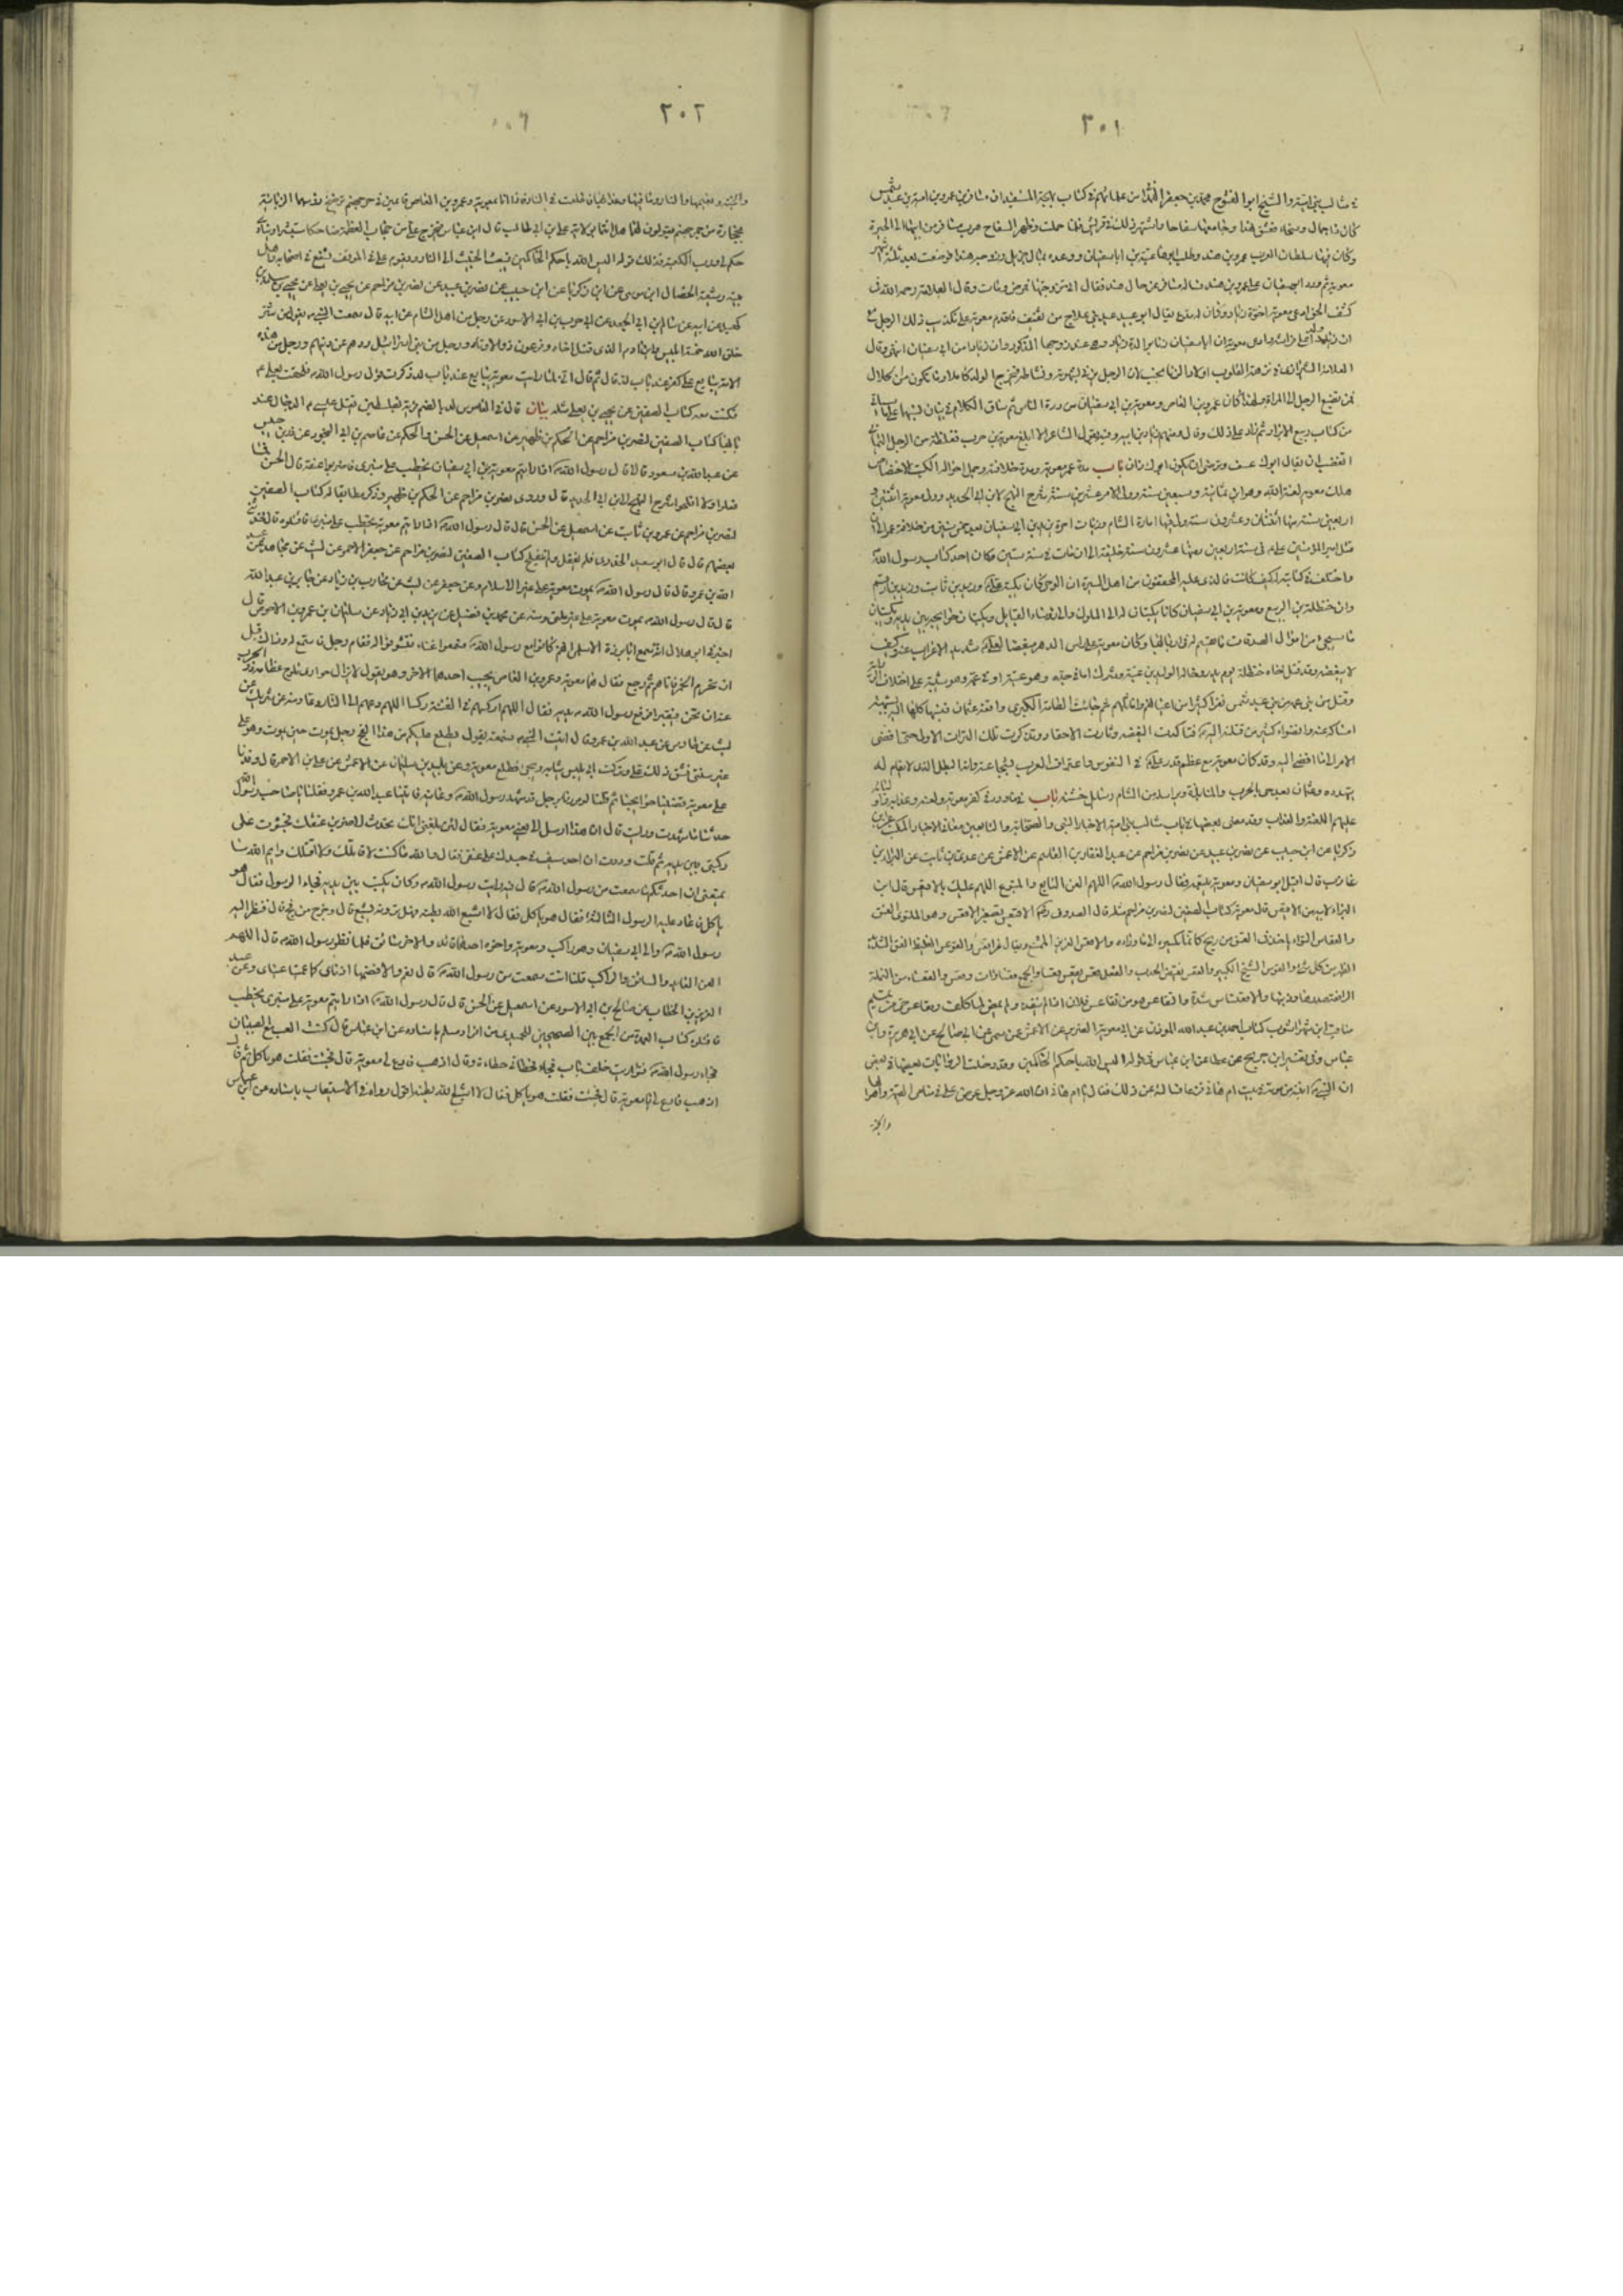 ٣٠١
في مثالب بني امية والشيخ ابو الفتوح محمد بن جعفر من علمائهم في كتاب بهجة المستفيد ان مسافر بن عمرو بن امية بن عبد شمس
كان ذا جمال وسخاء فعشق هندا وجامعها سفاحا واشتهر ذلك في قريش فلما حملت وظهر السفاح هرب مسافر من ابيها الى الحيرة
وكان فيها سلطان العرب عمرو بن هند وطلب ابوها عتبة ابا سفيان ووعده بمال جزيل وزوجه هندا فوضعت بعد ثلثة اشهر
معوية ثم ورد ابو سفيان على عمرو بن هند فسأله مسافر عن حال هند فقال اني تزوجتها فمرض ومات وقال العلامة رحمه الله في
كشف الحق ادعى معوية اخوة زياد وكان له مدع يقال ابو عبيد عبد بني علاج من ثقيف فاقدم معوية على تكذيب ذلك الرجل مع
ان زيادا ولد على فراشه وادعى معوية ان ابا سفيان زنا بوالدة زياد وهي عند زوجها المذكور وان زيادا من ابي سفيان انتهى وقال
العلامة الشيرازي في نزهة القلوب اولاد الزنا نجب لان الرجل يزني بشهوته ونشاطه فيخرج الولد كاملا وما يكون من الحلال
فمن تصنع الرجل الى المراة ولهذا كان عمرو بن العاص ومعوية بن ابي سفيان من دهاة الناس ثم ساق الكلام في بيان نسبهما على ما سيأتي
من كتاب ربيع الابرار ثم زاد على ذلك وقال ومنهم زياد بن ابيه وفيه يقول الشاعر الا ابلغ معوية بن حرب مغلغلة من الرجل اليماني
اتغضب ان يقال ابوك عف وترضى ان يكون ابوك زان باب مدة عمر معوية ومدة خلافته وجمل احواله الكتب الاختصاص
هلك معوية لعنه الله وهو ابن ثمانية وسبعين سنة وولى الامر عشرين سنة شرح النهج لابن ابي الحديد وولى معوية اثنتين و
اربعين سنة منها اثنتان وعشرون سنة ولى فيها امارة الشام مذ مات اخوه يزيد بن ابي سفيان بعد خمس سنين من خلافة عمر الى ان
قتل امير المؤمنين علي في سنة اربعين ومنها عشرون سنة خليفة الى ان مات في سنة ستين وكان احد كتاب رسول الله
واختلف في كتابته له كيف كانت فالذي عليه المحققون من اهل السيرة ان الوحي كان يكتبه علي وزيد بن ثابت وزيد بن ارقم
وان حنظلة بن الربيع ومعوية بن ابي سفيان كانا يكتبان له الى الملوك والى رؤساء القبايل ويكتبان حوائجه بين يديه ويكتبان
ما يجبى من اموال الصدقات ما يقسم له في اربابها وكان معوية على اس الدهر مبغضا لعلي شديد الانحراف عنه وكيف
لا يبغضه وقد قتل اخاه حنظلة يوم بدر وخاله الوليد بن عتبة وشرك اماه في جده وهو عتبة او في عمه وهو شيبة على اختلاف الرواية
وقتل من بني عمه من بني عبد شمس نفرا كثيرا من اعيانهم واماثلهم ثم جاءت الطامة الكبرى واقعة عثمان فنسبها كلها اليه بشبهة
امساكه عنه وانضواء كثير من قتلته اليه فتاكدت البغضة وثارت الاحقاد وتذكرت تلك الترات الاولى حتى افضى
الامر الى ما افضى اليه وقد كان معوية مع عظم قدر علي في النفوس واعتراف العرب بشجاعته وانه البطل الذي لا يقام له
يتهدده وعثمان بعد حي بالحرب والمنابذة ويراسله من الشام رسائل خشنة باب في ما ورد في كفر معوية ولعنه وعذابه واتباعه
عليهم اللعنة والعذاب وقد مضى بعضها في باب مثالب بني امية الاخبار النبي والصحابة والتابعين
زكريا عن ابن حبيب عن نصر بن عبيد عن نصر بن مزاحم عن عبد الغفار بن القاسم عن الاعمش عن عدي بن ثابت عن البراء بن
عازب قال اقبل ابو سفيان ومعوية يتبعه فقال رسول الله اللهم العن التابع والمتبوع اللهم عليك بالاقيعس قال ابن
البراء لابيه من الاقيعس قال معوية كتاب الصفين لنصر بن مزاحم مثله قال الصدوق ره الاقيعس تصغير الاقعس وهو الملتوي العنق
والقعاس التواء ياخذ في العنق من ريح كانما يكسره الى ما وراءه والاقعس العزيز الممتنع ويقال عز اقعس والقوعس الغليظ العنق الشديد
الظهر من كل شيء والقعوس الشيخ الكبير والقعس نقيض الحدب والفعل قعس يقعس قعسا والجمع قعساوات وقعس والقعساء من النملة
الرافعة صدرها وذنبها والاقعنساس شدة والتقاعس هو من تقاعس فلان اذا لم ينفذ ولم يمض لما كلف ومقاعس حي من تميم
مناقب ابن شهراشوب كتاب احمد بن عبد الله المؤذن عن ابي معوية الضرير عن الاعمش عن سمي عن ابي صالح عن ابي هريرة وابن
عباس وفي تفسير ابن جريح عن عطاء عن ابن عباس في قوله اليس الله باحكم الحاكمين وقد دخلت الروايات بعضها في بعض
ان النبي انتبه من نومه في بيت ام هانئ فزعا فسألته عن ذلك فقال يا ام هانئ ان الله عز وجل عرض علي في منامي القيمة واهوالها
والجنة
٣٠٢
والجنة ونعيمها والنار وما فيها وعذابها فاطلعت في النار فاذا انا بمعوية وعمرو بن العاص قائمين في حر جهنم ترضخ رؤسهما الزبانية
بحجارة من جمر جهنم يقولون لهما هلا امنتما بولاية علي بن ابي طالب قال ابن عباس فيخرج علي من حجاب العظمة ضاحكا مستبشرا وينادي
حكم لي ورب الكعبة فذلك قوله اليس الله باحكم الحاكمين فيبعث الخبيث الى النار ويقوم علي في الموقف يشفع في اصحابه واهل
بيته وشيعته الخصال ابن موسى عن ابن زكريا عن ابن حبيب عن نصر بن عبيد عن نصر بن مزاحم عن يحيى بن يعلى عن يحيى بن سلمة بن
كهيل عن ابيه عن سالم بن ابي الجعد عن ابي حرب بن ابي الاسود عن رجل من اهل الشام عن ابيه قال سمعت النبي يقول من شر
خلق الله خمسة ابليس وابن ادم الذي قتل اخاه وفرعون ذو الاوتاد ورجل من بني اسرائيل ردهم عن دينهم ورجل من هذه
الامة يبايع على كفر عند باب لد قال ثم قال اني لما رايت معوية يبايع عند باب لد ذكرت قول رسول الله فلحقت بعلي
فكنت معه كتاب الصفين عن يحيى بن يعلى مثله بيان قال في القاموس لد بالضم قرية بفلسطين يقتل عيسى الدجال عند
بابها كتاب الصفين لنصر بن مزاحم عن الحكم بن ظهير عن اسمعيل عن الحسن والحكم عن عاصم بن ابي النجود عن زر بن حبيش
عن عبد الله بن مسعود قالا قال رسول الله اذا رايتم معوية بن ابي سفيان يخطب على منبري فاضربوا عنقه قال الحسن فما
فعلوا ولا افلحوا شرح النهج لابن ابي الحديد قال وروى نصر بن مزاحم عن الحكم بن ظهير وذكر مطابقا له كتاب الصفين
لنصر بن مزاحم عن عمرو بن ثابت عن اسمعيل عن الحسن قال قال رسول الله اذا رايتم معوية يخطب على منبري فاقتلوه قال فحدثني
بعضهم قال قال ابو سعيد الخدري فلم نفعل ولم نفلح كتاب الصفين لنصر بن مزاحم عن جعفر الاحمر عن ليث عن مجاهد عن عبد
الله بن عمرو قال قال رسول الله يموت معوية على غير الاسلام وعن جعفر عن ليث عن محارب بن زياد عن جابر بن عبد الله
قال قال رسول الله يموت معوية على غير ملتي ومنه عن محمد بن فضيل عن يزيد بن ابي زياد عن سليمان بن عمرو بن الاحوص قال
اخبرني ابو هلال انه سمع ابا برزة الاسلمي انهم كانوا مع رسول الله فسمعوا غناء فتشرفوا له فقام رجل فاستمع له وذاك قبل
ان تحرم الخمر فاتاهم ثم رجع فقال هذا معوية وعمرو بن العاص يجيب احدهما الاخر وهو يقول لا يزال حواري تلوح عظامه زوى الحرب
عنه ان يحن فيقبرا فرفع رسول الله يديه فقال اللهم اركسهم في الفتنة ركسا اللهم دعهم الى النار دعا ومنه عن شريك عن
ليث عن طاوس عن عبد الله بن عمرو قال اتيت النبي فسمعته يقول يطلع عليكم من هذا الفج رجل يموت حين يموت وهو على
غير سنتي فشق ذلك علي وتركت ابي يلبس ثيابه ويجيء فطلع معوية وعن بليد بن سليمان عن الاعمش عن علي بن الاقمر قال وفدنا
على معوية وقضينا حوائجنا ثم قلنا لو مررنا برجل قد شهد رسول الله وعاينه فاتينا عبد الله بن عمرو فقلنا يا صاحب رسول الله
حدثنا ما شهدت ورايت قال ان هذا ارسل الي يعني معوية فقال لئن بلغني انك تحدث لاضربن عنقك فجثوت على
ركبتي بين يديه ثم قلت وددت ان احد سيف في جندك على عنقي فقال والله ما كنت لاقاتلك ولا اقتلك وايم الله ما
يمنعني ان احدثكم ما سمعت من رسول الله قال فيه رايت رسول الله وكان يكتب بين يديه فجاء الرسول فقال هو
ياكل فاعاد عليه الرسول الثالثة فقال هو ياكل فقال لا اشبع الله بطنه فهل ترونه يشبع قال وخرج من فج قال فنظر اليه
رسول الله والى ابي سفيان وهو راكب ومعوية واخوه احدهما قائد والاخر سائق فلما نظر رسول الله قال اللهم
العن القائد والسائق والراكب قلنا انت سمعت من رسول الله قال نعم والا فصمتا اذناي كما عميتا عيناي وعن عبد
العزيز بن الخطاب عن صالح بن ابي الاسود عن اسمعيل عن الحسن قال قال رسول الله اذا رايتم معوية على منبري يخطب
فاقتلوه كتاب العمدة من الجمع بين الصحيحين للحميدي من افراد مسلم باسناده عن ابن عباس قال كنت العب مع الصبيان
فجاء رسول الله فتواريت خلف باب فجاء فحطاني حطاة وقال اذهب فادع لي معوية قال فجئت فقلت هو ياكل ثم قال
اذهب فادع لي معوية قال فجئت فقلت هو ياكل فقال لا اشبع الله بطنه اقول رواه في الاستيعاب باسناده عن ابن عباس